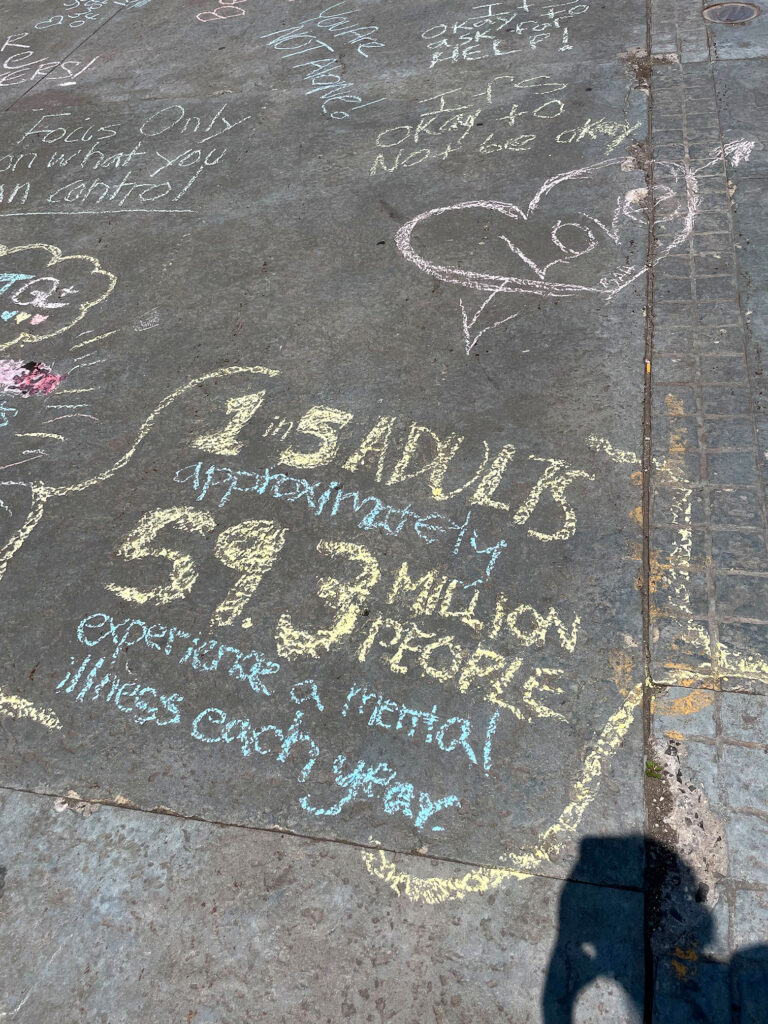 You're
NOT Alone!
It's to
okay
ask for
HELP!
Focus Only
on what you
control!
ITS
okay to
Not be okay
LOVE
TQ+
1 in 5 ADULTS
approximately
59.3 MILLION
PEOPLE
experience a mental
illness each year.